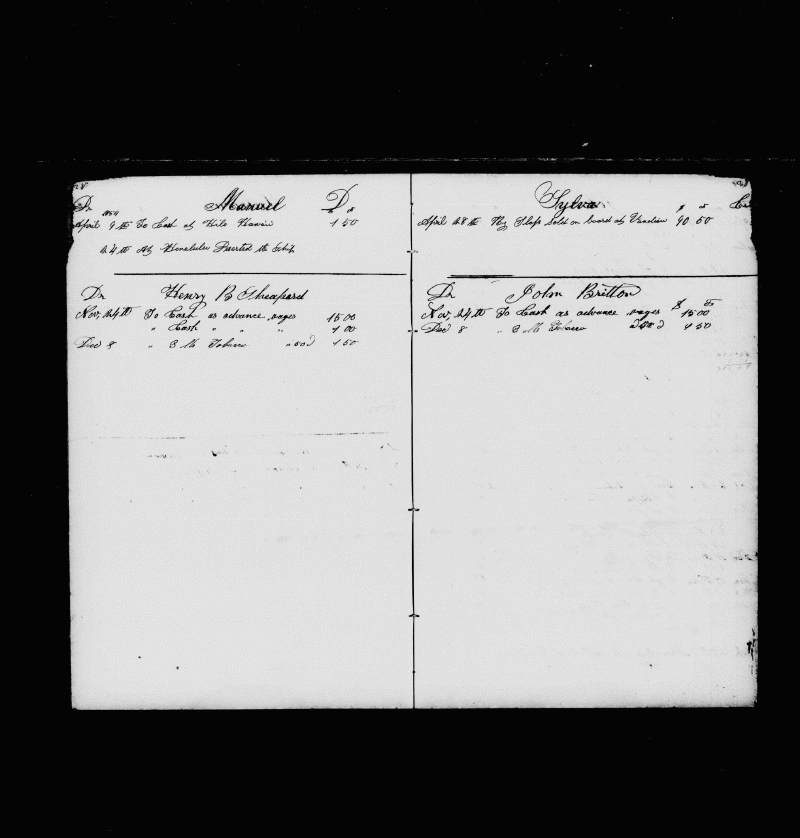 Dr Manuel D
1854
April 9th To Cash at Hilo Hawaii 1 50
24th At Honolulu Deserted the Ship
Dr Henry B Sheapard
Nov, 24th To Cash as advance wages 15 00
" Cash " " " 1 00
Dec 8 " Tobacco 1 50
Sylva
April 28th By Slops Sold on board at 90 50
Dr John Britton
Nov, 24th To Cash as advance wages 15 00
Dec 8 " Tobacco 1 50